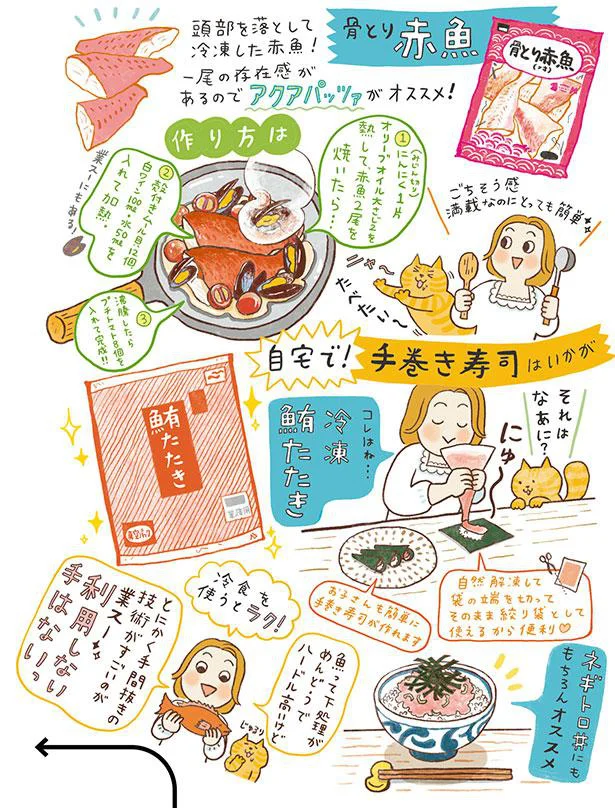 骨とり赤魚
頭部を落として
冷凍した赤魚！
一尾の存在感が
あるのでアクアパッツァがオススメ！
骨とり赤魚
作り方は
①
(みじん切り)
にんにく1片
オリーブオイル大さじ2を
熱して、赤魚2尾を
焼いたら…
②
殻付きムール貝12個
白ワイン100㎖、水50㎖を
入れて加熱…
業スーにもある！
③
沸騰したら
プチトマト8個を
入れて完成！！
ごちそう感
満載なのにとっても簡単
ニャ〜
たべたい〜
自宅で！手巻き寿司はいかが
鮪たたき
業務用
コレはね…
冷凍
鮪たたき
それは
なあに？
にゅ〜
お子さんも簡単に
手巻き寿司が作れます
自然解凍して
袋の立端を切って
そのまま絞り袋として
使えるから便利♡
冷食を
使うとラク！
とにかく手間抜きの
技術がすごいのが
業スー
利用しない
手はないっ
魚って下処理が
めんどうで
ハードル高いけど
じゅるり
ネギトロ丼にも
もちろんオススメ